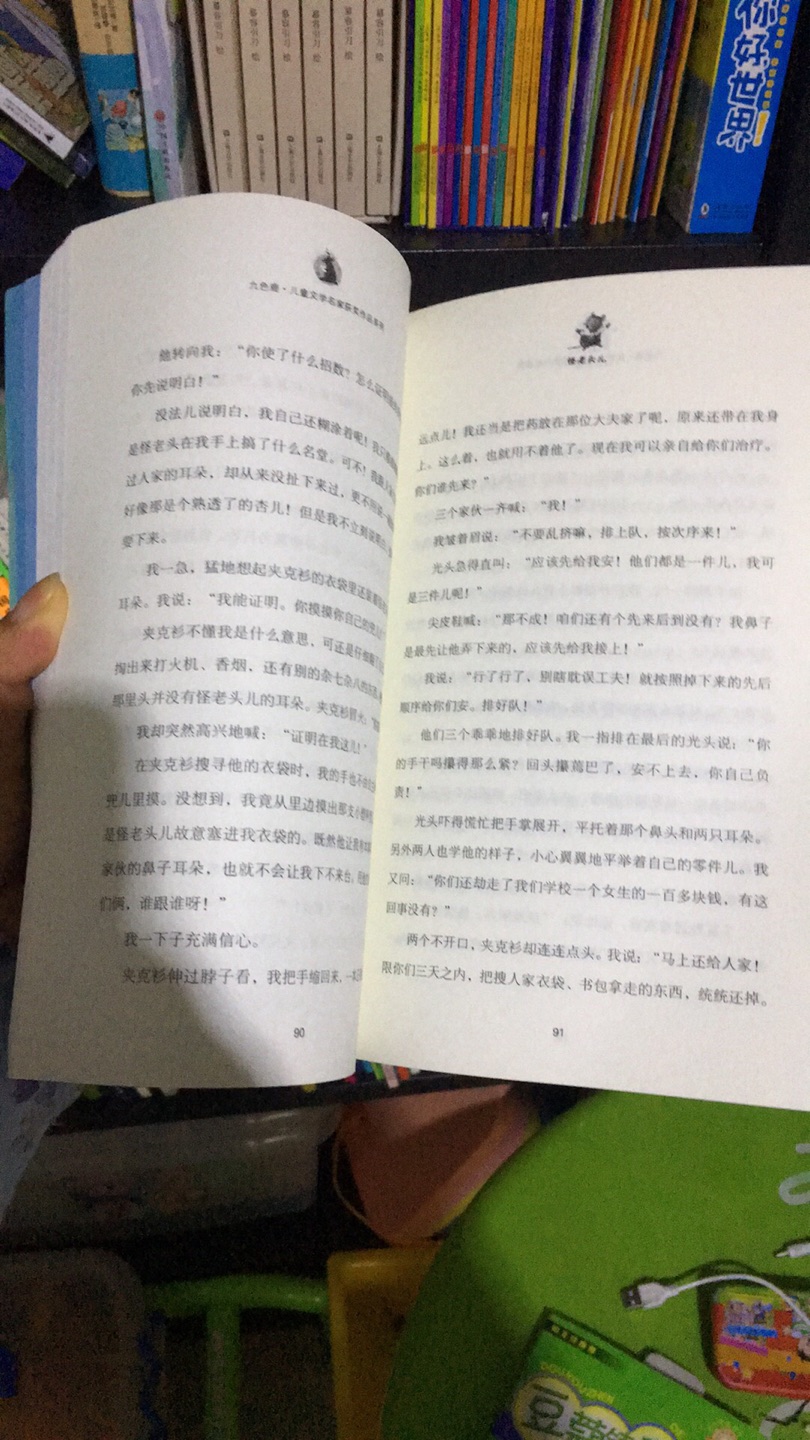 你好世界
九色鹿·儿童文学名家获奖作品系列
她转向我：“你使了什么招数？怎么证明
你先说明白！”
没法儿说明白，我自己还糊涂着呢！我只
是怪老头在我手上搞了什么名堂。可不！我
过人家的耳朵，却从来没扯下来过，更不用说
好像那是个熟透了的杏儿！但是我不立刻说
要下来。
我一急，猛地想起夹克衫的衣袋里还装着
耳朵。我说：“我能证明。你摸摸你自己的
夹克衫不懂我是什么意思，可还是仔细
掏出来打火机、香烟，还有别的杂七杂八的东西，
那里头并没有怪老头儿的耳朵。夹克衫冒火：
我却突然高兴地喊：“证明在我这儿！”
在夹克衫搜寻他的衣袋时，我的手也不由
兜儿里摸。没想到，我竟从里边摸出那支小
是怪老头儿故意塞进我衣袋的。既然他让我
家伙的鼻子耳朵，也就不会让我下不来台。
们俩，谁跟谁呀！”
我一下子充满信心。
夹克衫伸过脖子看，我把手缩回来，一本
90
怪老头儿
远点儿！我还当是把药放在那位大夫家了呢，原来还带在我身
上。这么着，也就用不着他了。现在我可以亲自给你们治疗。
你们谁先来？”
三个家伙一齐喊：“我！”
我皱着眉说：“不要乱挤嘛，排上队，按次序来！”
光头急得直叫：“应该先给我安！他们都是一件儿，我可
是三件儿呢！”
尖皮鞋喊：“那不成！咱们还有个先来后到没有？我鼻子
是最先让他弄下来的，应该先给我接上！”
我说：“行了行了，别瞎耽误工夫！就按照掉下来的先后
顺序给你们安。排好队！”
他们三个乖乖地排好队。我一指排在最后的光头说：“你
的手干吗攥得那么紧？回头攥蔫巴了，安不上去，你自己负
责！”
光头吓得慌忙把手掌展开，平托着那个鼻头和两只耳朵。
另外两人也学他的样子，小心翼翼地平举着自己的零件儿。我
又问：“你们还劫走了我们学校一个女生的一百多块钱，有这
回事没有？”
两个不开口，夹克衫却连连点头。我说：“马上还给人家！
限你们三天之内，把搜人家衣袋、书包拿走的东西，统统还掉。
91